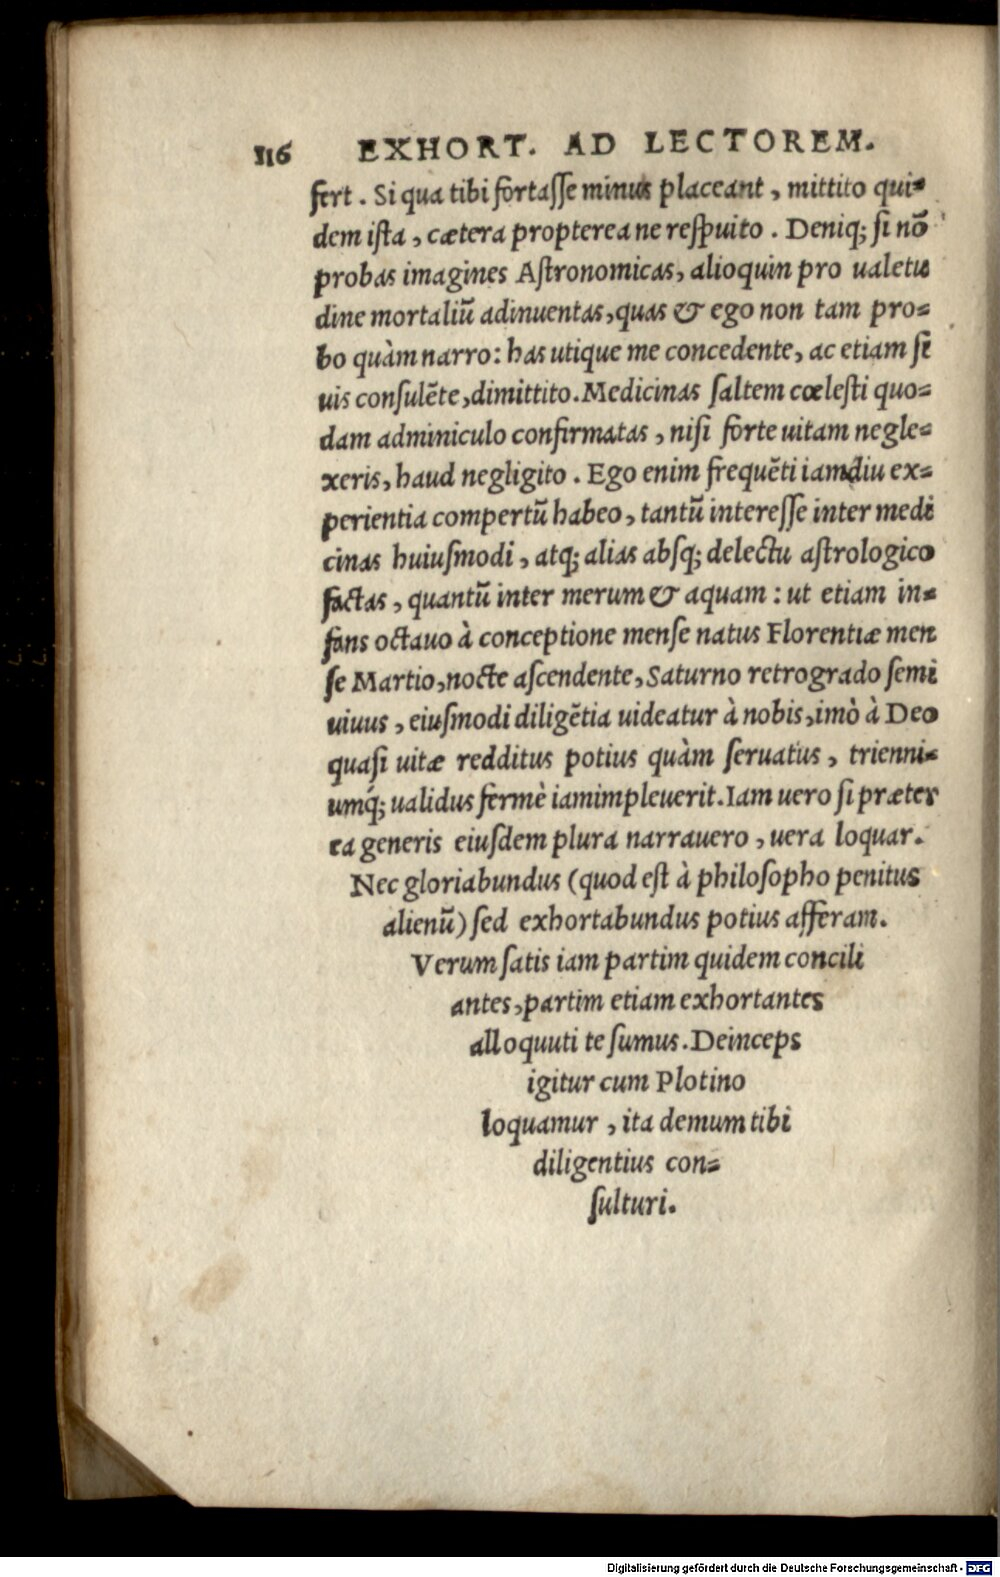 116 EXHORT. AD LECTOREM.
fert. Si qua tibi fortaſſe minus placeant, mittito qui=
dem iſta, cætera propterea ne reſpuito. Deniq; ſi nõ
probas imagines Aſtronomicas, alioquin pro ualetu
dine mortaliũ adinuentas, quas & ego non tam pro=
bo quàm narro: has utique me concedente, ac etiam ſi
uis conſulẽte, dimittito. Medicinas ſaltem cœleſti quo=
dam adminiculo confirmatas, niſi forte uitam negle=
xeris, haud negligito. Ego enim frequẽti iamdiu ex=
perientia compertũ habeo, tantũ intereſſe inter medi
cinas huiuſmodi, atq; alias abſq; delectu aſtrologico
factas, quantũ inter merum & aquam: ut etiam in=
fans octauo à conceptione menſe natus Florentiæ men
ſe Martio, nocte aſcendente, Saturno retrogrado ſemi
uiuus, eiuſmodi diligẽtia uideatur à nobis, imò à Deo
quaſi uitæ redditus potius quàm ſeruatus, trienni=
umq́; ualidus fermè iamimpleuerit. Iam uero ſi præter
ea generis eiuſdem plura narrauero, uera loquar.
Nec gloriabundus (quod eſt à philoſopho penitus
alienũ) ſed exhortabundus potius afferam.
Verum ſatis iam partim quidem concili
antes, partim etiam exhortantes
alloquuti te ſumus. Deinceps
igitur cum Plotino
loquamur, ita demum tibi
diligentius con=
ſulturi.
Digitalisierung gefördert durch die Deutsche Forschungsgemeinschaft - DFG